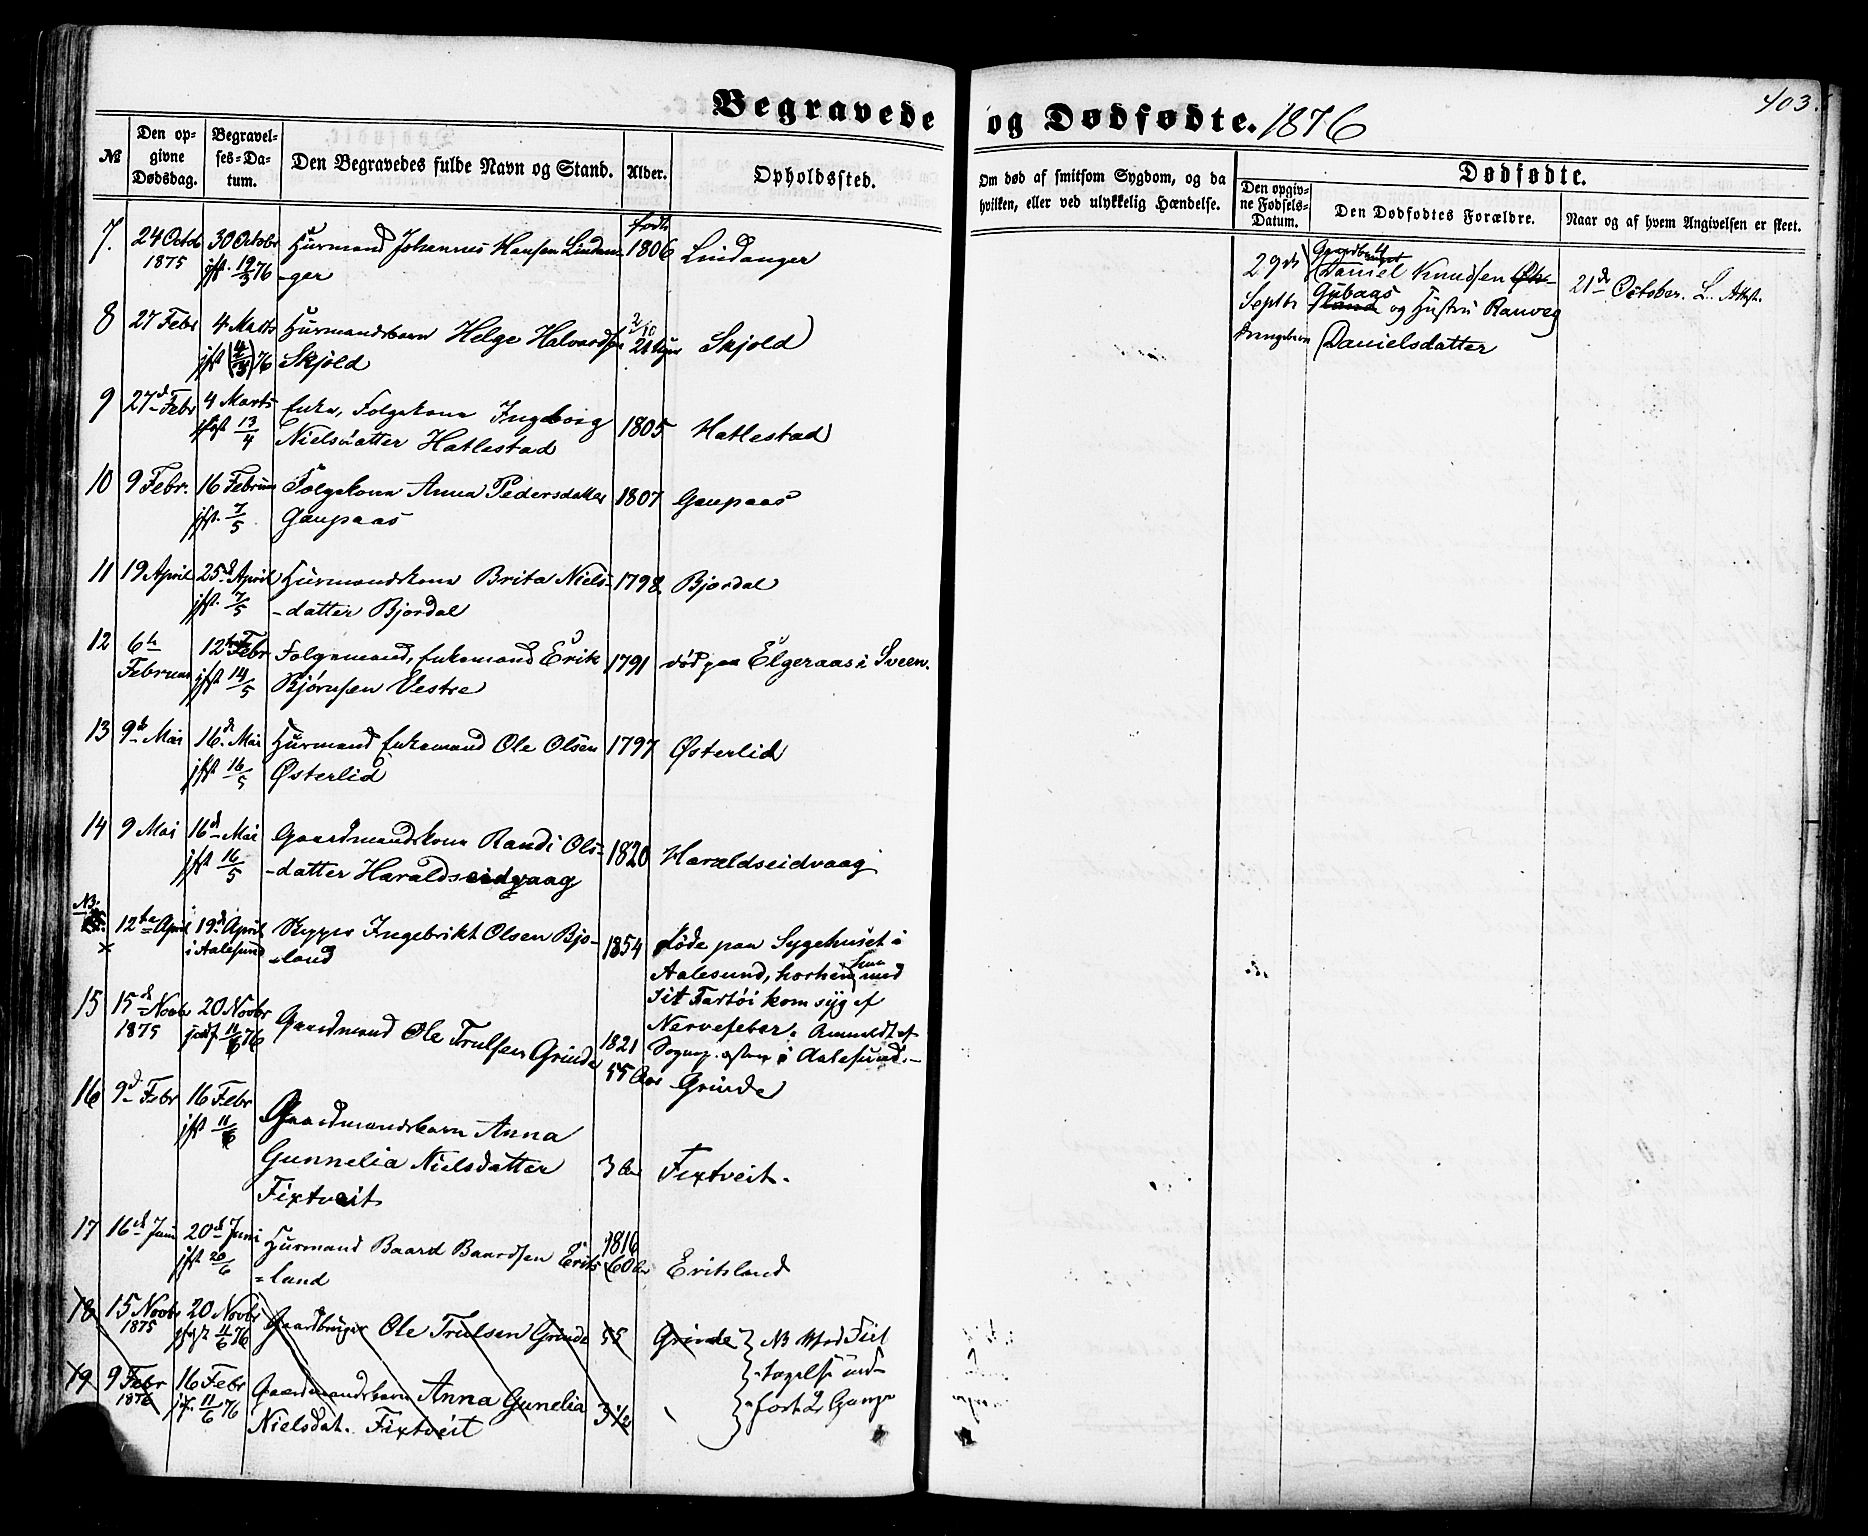 Begravede og Dødfødte. 1876
403.
№
Den op-
givne
Dødsdag.
Begravel-
ses-Da-
tum.
Den Begravedes fulde Navn og Stand.
Alder.
Opholdssted.
Om død af smitsom Sygdom, og da
hvilken, eller ved ulykkelig Hændelse.
Dødfødte.
Den opgiv-
ne Fødsels-
Datum.
Den Dødfødtes Forældre.
Naar og af hvem Angivelsen er skeet.
7. 24 Octob 30 Octobr Huusmand Johannes Hansen Lindan- født 1806 Lindanger
1875 jfst. 19/3 76 -ger
8 27 Febr 4 Marts Huusmandsbarn Helge Halvordsen Skjold
jfst (4/3) 76 Skjold
9 27d Febr 4 Marts Enke, Folgekone Ingeborg 1805 Hatlestad
13/4 Nielsdatter Hatlestad
10 9 Febr. 16 Februar Folgekone Anna Pedersdatter 1807 Gaupaas
jfst. 7/5 Gaupaas
11 19 April 25d April Huusmandskone Brita Niels- 1798 Bjordal
jfst. 7/5 -datter Bjordal
12 6te 12te Febr Folgemand, Enkemand Erik 1791 død paa Elgeraas i Sveen.
Februar jfst 14/5 Bjørnsen Vestre
13 9d Mai 16d Mai Huusmand Enkemand Ole Olsen 1797 Østerlid
jfst 16/5 Østerlid
14 9 Mai 16d Mai Gaardmandskone Randi Ols- 1820 Haraldseidvaag
jfst 16/5 -datter Haraldseidvaag
NB. 12te April 19d April Ingebrikt Olsen Bjo- 1854 døde paa Sygehuset i
x i Aalesund -land Aalesund, hvorhen han med
sit Fartøi kom syg af
Nervefeber. Anmeldt af
Sognep. i Aalesund.
15 15d Novb 20 Novbr Gaardmand Ole Trulsen Grinde 1821
1875 11/6 76 55 Aar Grinde
16 9d Febr 16 Febr Gaardmandsbarn Anna
jfst 11/6 Gunnelia Nielsdatter 3 Aar Fixtveit.
Fixtveit
17 16d Juni 20d Juni Huusmand Baard Baardsen Erits- 1816
jfst 20/6 =land 60 Aar Eritsland
18 15 Novbr 20 Novbr Gaardbruger Ole Trulsen Grinde 55 Grinde NB Ved Feil
1875 11/6 76 -tagelse ind-
19 9 Febr 16 Febr Gaardmandsbarn Anna Gunelia 3 1/2 ført 2 Gange
1876 jf. 11/6 76 Nielsdat. Fixtveit
29de Gaardbruger
Daniel Knudsen
Septbr Gubaas og Hustru Ranveg
Drengebarn Danielsdatter
21de October. L. Attest.